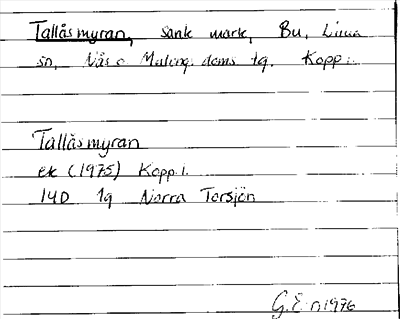 Tallåsmyran, sank mark, Bu, Lima
sn, Nås o Malung. doms tg. Kopp.l.
Tallåsmyran
ek (1975) Kopp.l.
14D 1g Norra Torsjön
G.E n 1976